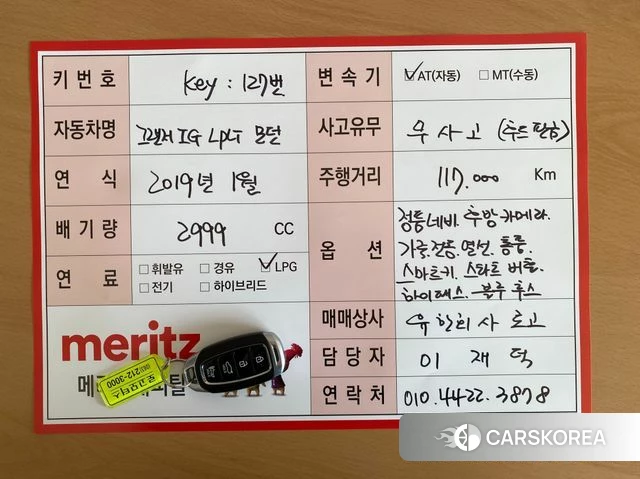 키 번 호 Key : 127번 변 속 기 ☑AT(자동) ☐MT(수동)
자동차명 그랜저 IG LPG 모던 사고유무 무 사 고 (후드 단순)
연 식 2019년 1월 주행거리 117.000 Km
배 기 량 2999 CC 옵 션 정품네비. 후방카메라.
가죽.전동.열선.통풍.
스마트키. 스타트 버튼.
하이패스. 블루 투스
연 료 ☐휘발유 ☐경유 ☑LPG
☐전기 ☐하이브리드
매매상사 유한회사 로고
담 당 자 이 재 덕
연 락 처 010.4422.3878
meritz
메 탈
로고모터스
063)212-3000
CARSKOREA